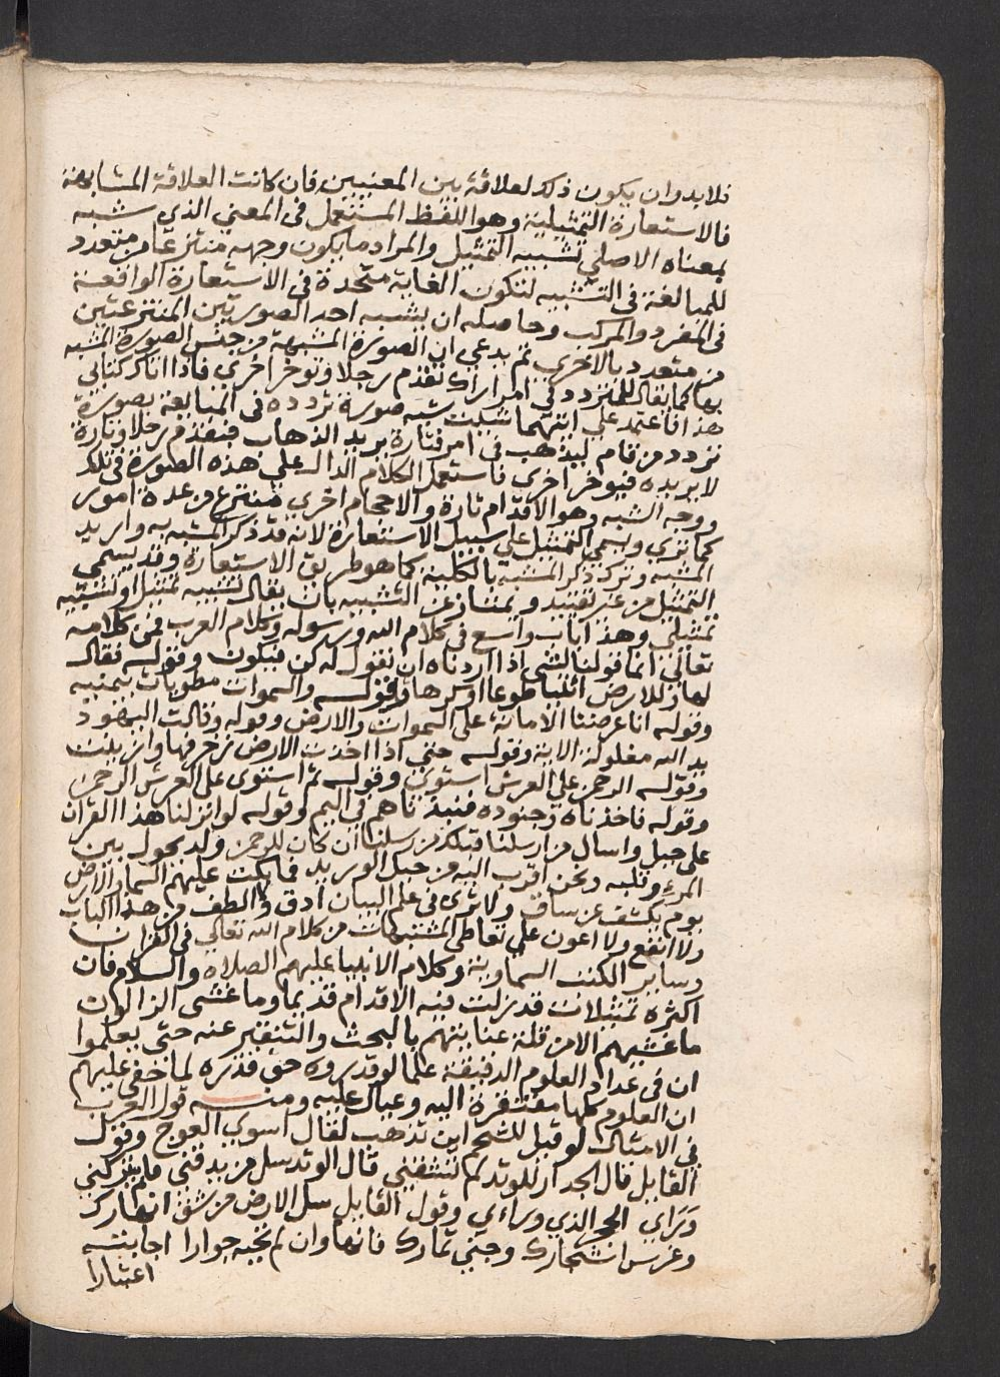 فلابد وان يكون ذلك لعلاقة بين المعنيين فان كانت العلاقة المشابهة
فالاستعارة التمثيلية وهو اللفظ المستعمل في المعني الذي شبه
بمعناه الاصلي تشبيه التمثيل والمراد ما يكون وجهه منتزعا من متعدد
للمبالغة في التشبيه لتكون الغاية متحدة في الاستعارة الواقعة
في المفرد والمركب وحاصله ان يشبه احد الصورتين المنتزعتين
من متعدد بالاخري ثم يدعي ان الصورة المشبهة من جنس الصورة المشبه
بها كما يقال للمتردد في امر اراك تقدم رجلا وتوخر اخري فاذا اتاك كتابي
هذا فاعتمد علي ايتهما شيت شبه صورة تردده في المبايعة بصورة
تردد من قام ليذهب في امر فتارة يريد الذهاب فيقدم رجلا وتارة
لا يريده فيوخر اخري فاستعمل الكلام الدال علي هذه الصورة في تلك
ووجه الشبه وهو الاقدام تارة والاحجام اخري منتزع من عدة امور
كما تري ويسمي التمثيل علي سبيل الاستعارة لانه قد ذكر المشبه به واريد
المشبه وترك ذكر المشبه بالكلية كما هو طريق الاستعارة وقد يسمي
التمثيل من غير تقييد ويمتاز عن التشبيه بان يقال تشبيه تمثيل او تشبيه
تمثيلي وهذا باب واسع في كلام الله ورسوله وكلام العرب فمن كلامه
تعالي انما قولنا لشي اذا اردناه ان نقول له كن فيكون وقوله فقال
لها وللارض ائتيا طوعا او كرها وقوله والسموات مطويات بيمينه
وقوله انا عرضنا الامانة علي السموات والارض وقوله وقالت اليهود
يد الله مغلولة الاية وقوله حتي اذا اخذت الارض زخرفها وازينت
وقوله الرحمن علي العرش استوي وقوله ثم استوي علي العرش الرحمن
وقوله فاخذناه وجنوده فنبذناهم في اليم وقوله لو انزلنا هذا القران
علي جبل واسال من ارسلنا قبلك من رسلنا ان كان للرحمن ولد يحول بين
المرء وقلبه ونحن اقرب اليه من حبل الوريد فما بكت عليهم السما والارض
يوم يكشف عن ساق ولا تري في علم البيان ادق ولا الطف من هذا الباب
ولا انفع ولا اعون علي تعاطي المشتبهات من كلام الله تعالي في القران
وساير الكتب السماوية وكلام الانبيا عليهم الصلاة والسلام فان
اكثره تمثيلات قد زلت فيه الاقدام قديما وما غشي الزالون
ما غشيهم الا من قلة عنايتهم بالبحث والتنقير عنه حتي يعلموا
ان في عداد العلوم الدقيقة علما لو قدروه حق قدره لما خفي عليهم
ان العلوم كلها مفتقرة اليه وعيال عليه ومنه قول العرب
في الامثال لو قيل للشحم اين تذهب لقال اسوي العوج وقول
القايل قال الجدار للوتد لم تشقني قال الوتد سل من يدقني فلم يتركني
وراي الحجر الذي وراءي وقول القايل سل الارض من شق انهارك
وغرس اشجارك وجني ثمارك فانها وان لم تجبه حوارا اجابته
اعتبارا